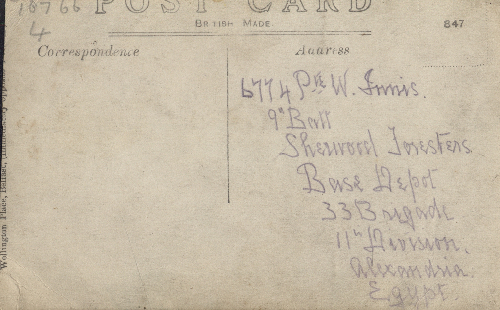 18766
4
POST CARD
BRITISH MADE.
847
Correspondence
Address
6774 Pte W. Innis.
9th Batt
Sherwood Foresters
Base Depot
33 Brigade
11th Division.
Alexandria.
Egypt.
Wellington Place, Belfast,